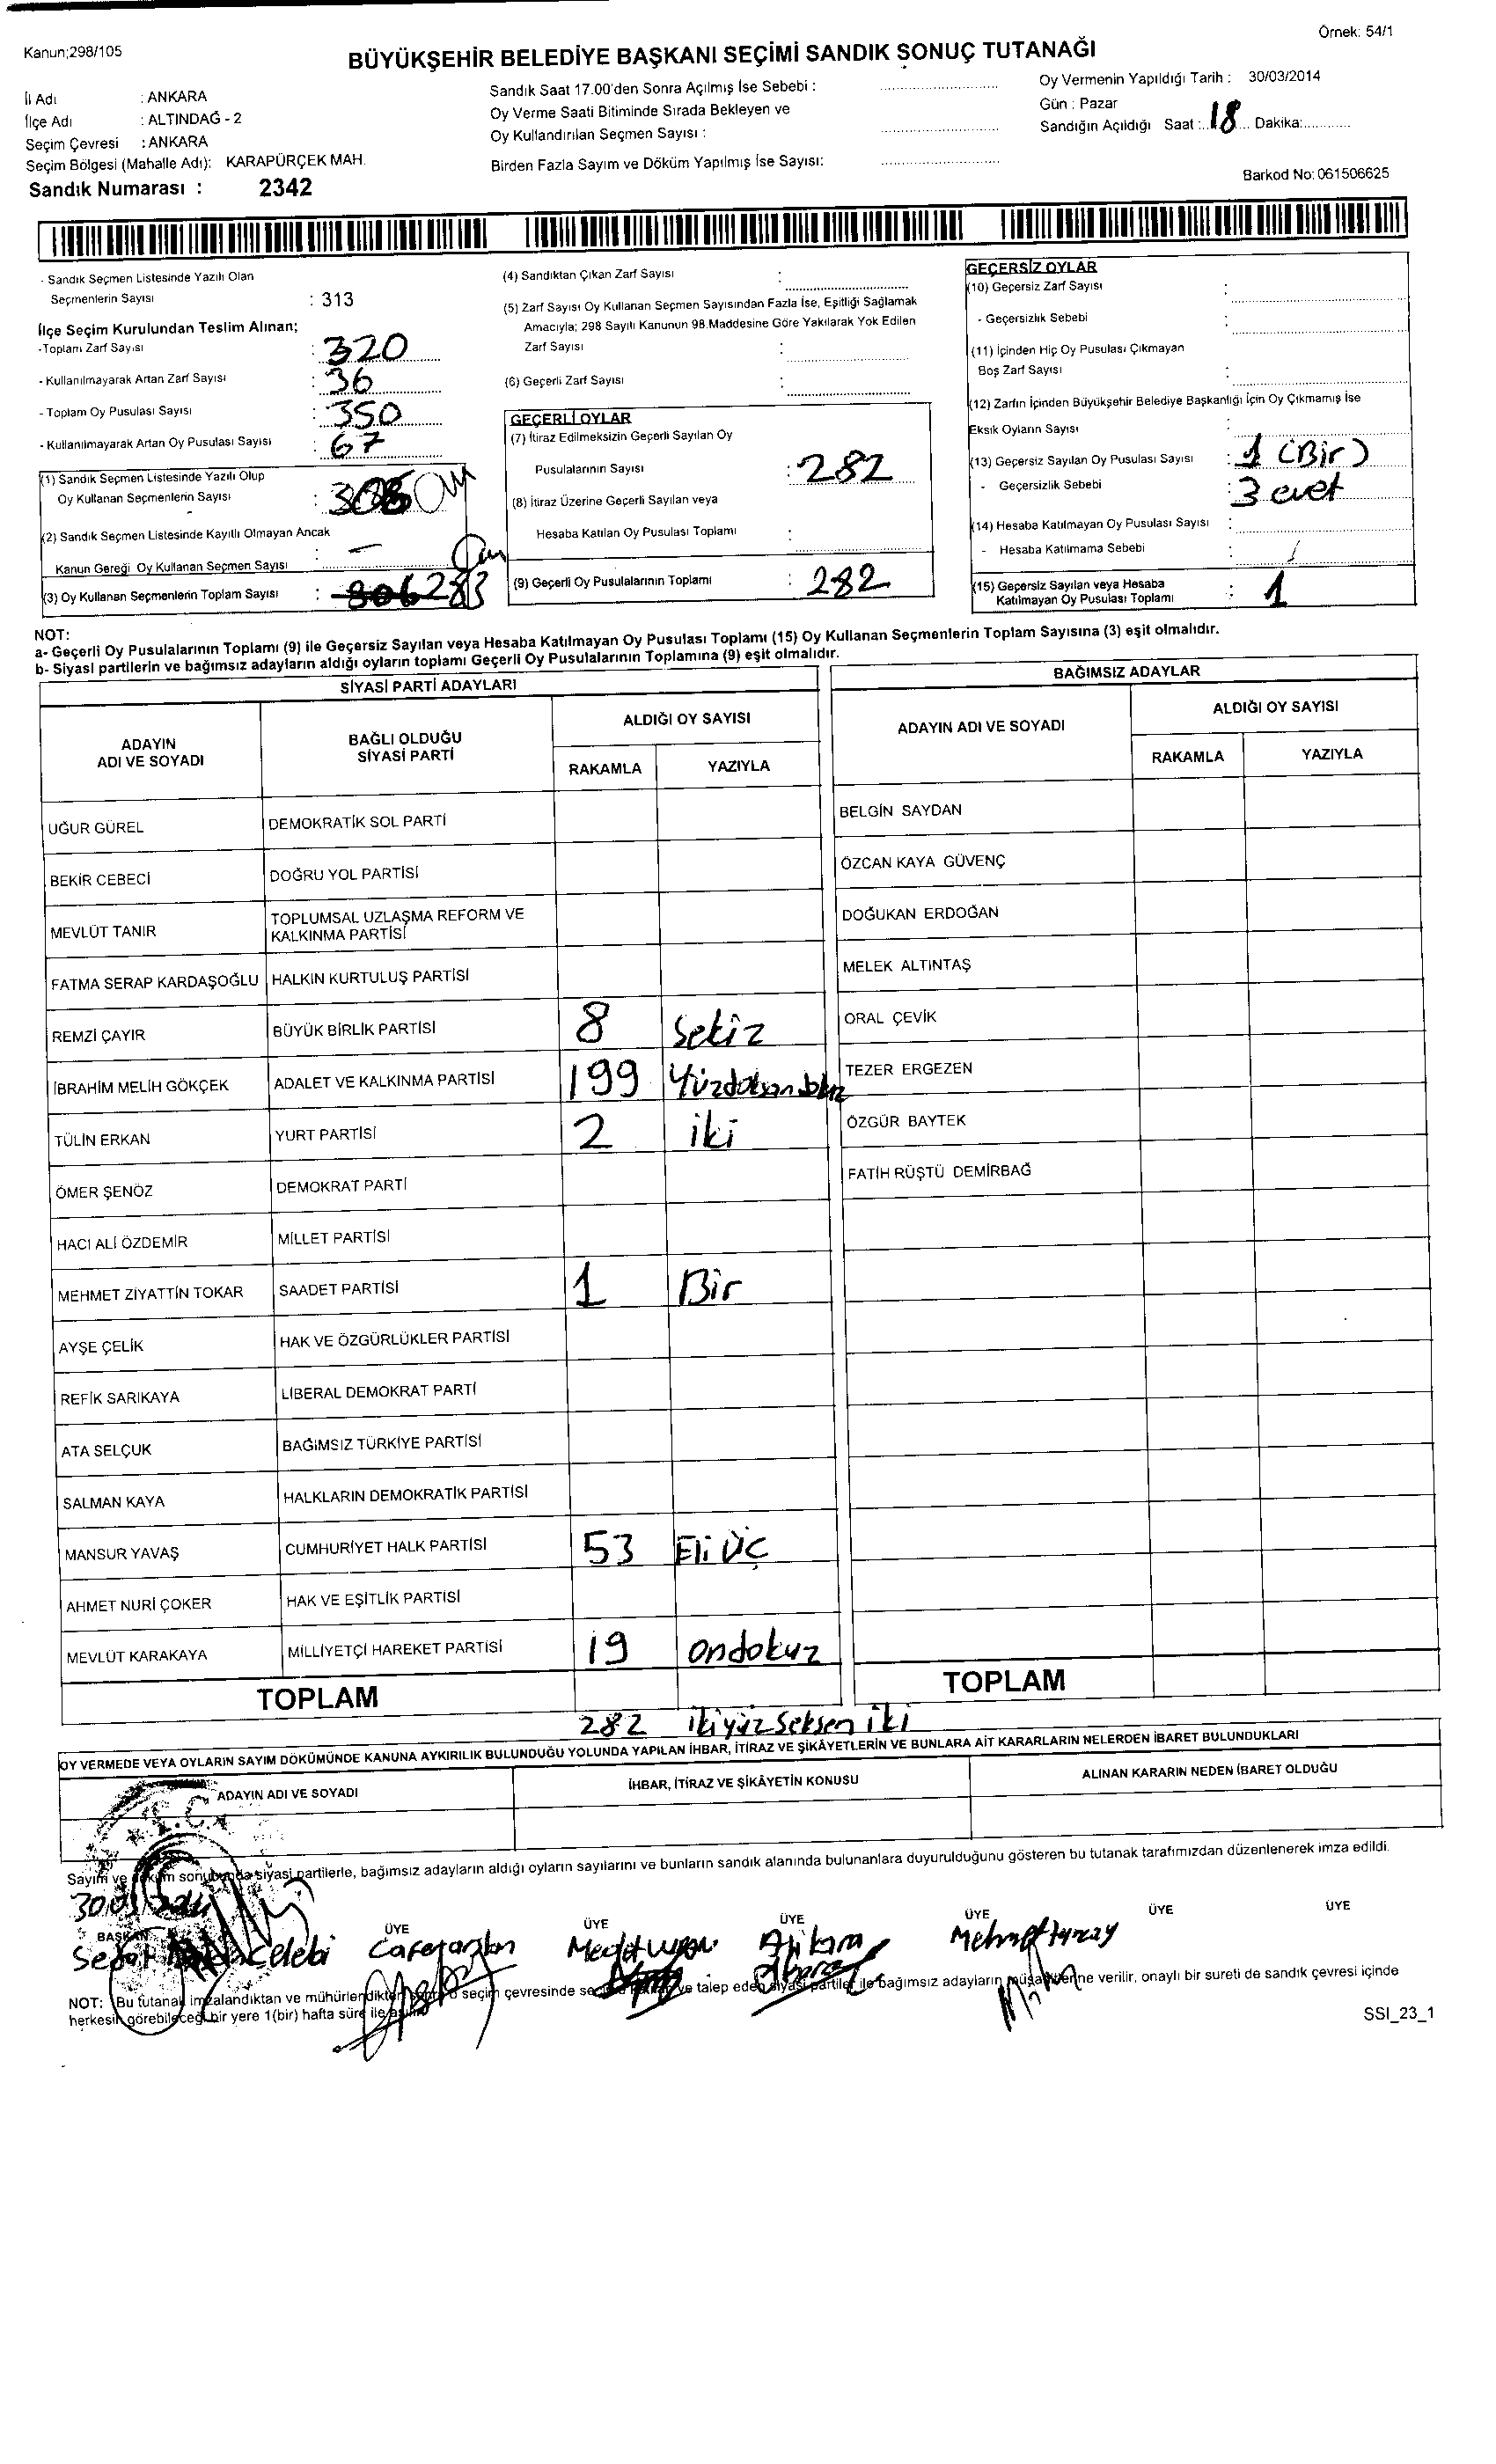 Örnek: 54/1
Kanun;298/105
BÜYÜKŞEHİR BELEDİYE BAŞKANI SEÇİMİ SANDIK SONUÇ TUTANAĞI
İl Adı : ANKARA
İlçe Adı : ALTINDAĞ - 2
Seçim Çevresi : ANKARA
Seçim Bölgesi (Mahalle Adı): KARAPÜRÇEK MAH.
Sandık Numarası : 2342
Sandık Saat 17.00'den Sonra Açılmış İse Sebebi :
Oy Verme Saati Bitiminde Sırada Bekleyen ve
Oy Kullandırılan Seçmen Sayısı :
Birden Fazla Sayım ve Döküm Yapılmış İse Sayısı:
Oy Vermenin Yapıldığı Tarih : 30/03/2014
Gün : Pazar
Sandığın Açıldığı Saat : 18 Dakika:
Barkod No: 061506625
- Sandık Seçmen Listesinde Yazılı Olan
Seçmenlerin Sayısı : 313
İlçe Seçim Kurulundan Teslim Alınan;
-Toplam Zarf Sayısı : 320
- Kullanılmayarak Artan Zarf Sayısı : 36
- Toplam Oy Pusulası Sayısı : 350
- Kullanılmayarak Artan Oy Pusulası Sayısı : 67
(1) Sandık Seçmen Listesinde Yazılı Olup
Oy Kullanan Seçmenlerin Sayısı :
(2) Sandık Seçmen Listesinde Kayıtlı Olmayan Ancak
Kanun Gereği Oy Kullanan Seçmen Sayısı : -
(3) Oy Kullanan Seçmenlerin Toplam Sayısı : 306 283
(4) Sandıktan Çıkan Zarf Sayısı :
(5) Zarf Sayısı Oy Kullanan Seçmen Sayısından Fazla İse, Eşitliği Sağlamak
Amacıyla; 298 Sayılı Kanunun 98.Maddesine Göre Yakılarak Yok Edilen
Zarf Sayısı :
(6) Geçerli Zarf Sayısı :
GEÇERLİ OYLAR
(7) İtiraz Edilmeksizin Geçerli Sayılan Oy
Pusulalarının Sayısı : 282
(8) İtiraz Üzerine Geçerli Sayılan veya
Hesaba Katılan Oy Pusulası Toplamı :
(9) Geçerli Oy Pusulalarının Toplamı : 282
GEÇERSİZ OYLAR
(10) Geçersiz Zarf Sayısı :
- Geçersizlik Sebebi :
(11) İçinden Hiç Oy Pusulası Çıkmayan
Boş Zarf Sayısı :
(12) Zarfın İçinden Büyükşehir Belediye Başkanlığı İçin Oy Çıkmamış İse
Eksik Oyların Sayısı :
(13) Geçersiz Sayılan Oy Pusulası Sayısı : 1 (Bir)
- Geçersizlik Sebebi : 3 evet
(14) Hesaba Katılmayan Oy Pusulası Sayısı :
- Hesaba Katılmama Sebebi : /
(15) Geçersiz Sayılan veya Hesaba
Katılmayan Oy Pusulası Toplamı : 1
NOT:
a- Geçerli Oy Pusulalarının Toplamı (9) ile Geçersiz Sayılan veya Hesaba Katılmayan Oy Pusulası Toplamı (15) Oy Kullanan Seçmenlerin Toplam Sayısına (3) eşit olmalıdır.
b- Siyasi partilerin ve bağımsız adayların aldığı oyların toplamı Geçerli Oy Pusulalarının Toplamına (9) eşit olmalıdır.
SİYASİ PARTİ ADAYLARI
ADAYIN ADI VE SOYADI
BAĞLI OLDUĞU SİYASİ PARTİ
ALDIĞI OY SAYISI
RAKAMLA YAZIYLA
UĞUR GÜREL DEMOKRATİK SOL PARTİ
BEKİR CEBECİ DOĞRU YOL PARTİSİ
MEVLÜT TANIR TOPLUMSAL UZLAŞMA REFORM VE KALKINMA PARTİSİ
FATMA SERAP KARDAŞOĞLU HALKIN KURTULUŞ PARTİSİ
REMZİ ÇAYIR BÜYÜK BİRLİK PARTİSİ 8 Sekiz
İBRAHİM MELİH GÖKÇEK ADALET VE KALKINMA PARTİSİ 199
TÜLİN ERKAN YURT PARTİSİ 2 iki
ÖMER ŞENÖZ DEMOKRAT PARTİ
HACI ALİ ÖZDEMİR MİLLET PARTİSİ
MEHMET ZİYATTİN TOKAR SAADET PARTİSİ 1 Bir
AYŞE ÇELİK HAK VE ÖZGÜRLÜKLER PARTİSİ
REFİK SARIKAYA LİBERAL DEMOKRAT PARTİ
ATA SELÇUK BAĞIMSIZ TÜRKİYE PARTİSİ
SALMAN KAYA HALKLARIN DEMOKRATİK PARTİSİ
MANSUR YAVAŞ CUMHURİYET HALK PARTİSİ 53 Eli ÜÇ
AHMET NURİ ÇOKER HAK VE EŞİTLİK PARTİSİ
MEVLÜT KARAKAYA MİLLİYETÇİ HAREKET PARTİSİ 19 ondokuz
TOPLAM 282 ikiyüz seksen iki
BAĞIMSIZ ADAYLAR
ADAYIN ADI VE SOYADI
ALDIĞI OY SAYISI
RAKAMLA YAZIYLA
BELGİN SAYDAN
ÖZCAN KAYA GÜVENÇ
DOĞUKAN ERDOĞAN
MELEK ALTINTAŞ
ORAL ÇEVİK
TEZER ERGEZEN
ÖZGÜR BAYTEK
FATİH RÜŞTÜ DEMİRBAĞ
TOPLAM
OY VERMEDE VEYA OYLARIN SAYIM DÖKÜMÜNDE KANUNA AYKIRILIK BULUNDUĞU YOLUNDA YAPILAN İHBAR, İTİRAZ VE ŞİKÂYETLERİN VE BUNLARA AİT KARARLARIN NELERDEN İBARET BULUNDUKLARI
ADAYIN ADI VE SOYADI
İHBAR, İTİRAZ VE ŞİKÂYETİN KONUSU
ALINAN KARARIN NEDEN İBARET OLDUĞU
Sayım ve döküm sonucunda siyasi partilerle, bağımsız adayların aldığı oyların sayılarını ve bunların sandık alanında bulunanlara duyurulduğunu gösteren bu tutanak tarafımızdan düzenlenerek imza edildi.
BAŞKAN ÜYE ÜYE ÜYE ÜYE ÜYE ÜYE
Çelebi
NOT: Bu tutanak imzalandıktan ve mühürlendikten seçim çevresinde ve talep eden siyasi partiler ile bağımsız adayların müşahitlerine verilir, onaylı bir sureti de sandık çevresi içinde
herkesin görebileceği bir yere 1(bir) hafta süre ile
SSI_23_1